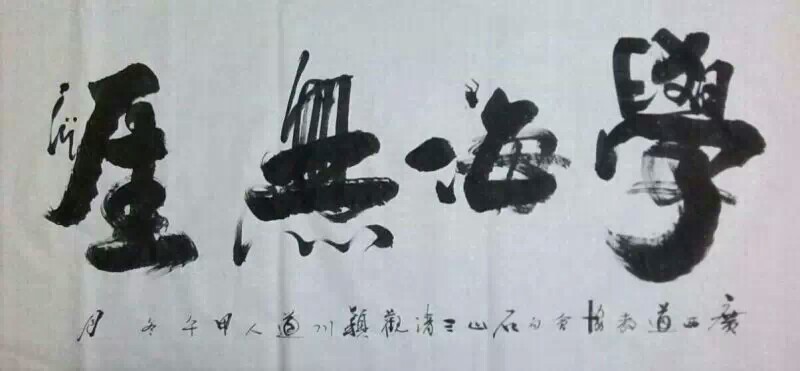 學海無涯
廣西道教協會白石山三清觀穎川道人甲午冬月